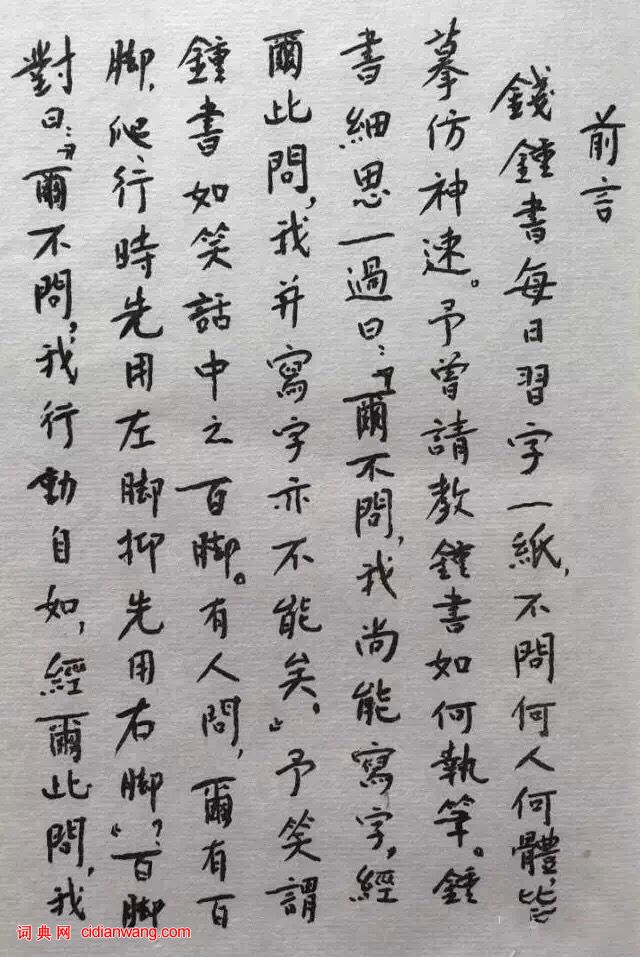 前言
錢鍾書每日習字一紙，不問何人何體，皆
摹仿神速。予曾請教鍾書如何執筆。鍾
書細思一過曰：“爾不問，我尚能寫字，經
爾此問，我并寫字亦不能矣。”予笑謂
鍾書如笑話中之百脚。有人問，爾有百
脚，爬行時先用左脚抑先用右脚？”百脚
對曰：“爾不問，我行動自如，經爾此問，我
词典网 cidianwang.com